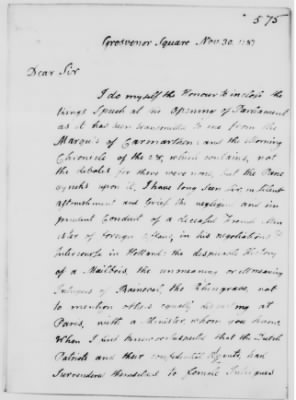 575
Grosvenor Square Nov. 30. 1787
Dear Sir
I do myself the Honour to inclose the
Kings Speech at the Opening of Parliament
as it has been transmitted to me from the
Marquis of Carmarthen: and the Morning
Chronicle of the 28, which contains, not
the debates for there were none, but the Pane
gyricks upon it. I have long seen Sir, in silent
astonishment and Grief the negligent and im
prudent Conduct of a deceased French Min
ister of foreign affairs, in his negotiations &
Intercourse in Holland: the desperate History
of a Maillebois, the unmeaning or ill meaning
Intrigues of the Rhingrave, not
to mention others equally at
Paris, with a Minister, whom you know.
When I that the Dutch
Patriots and their confidential Agents, had
Surrendered themselves to female Intrigues